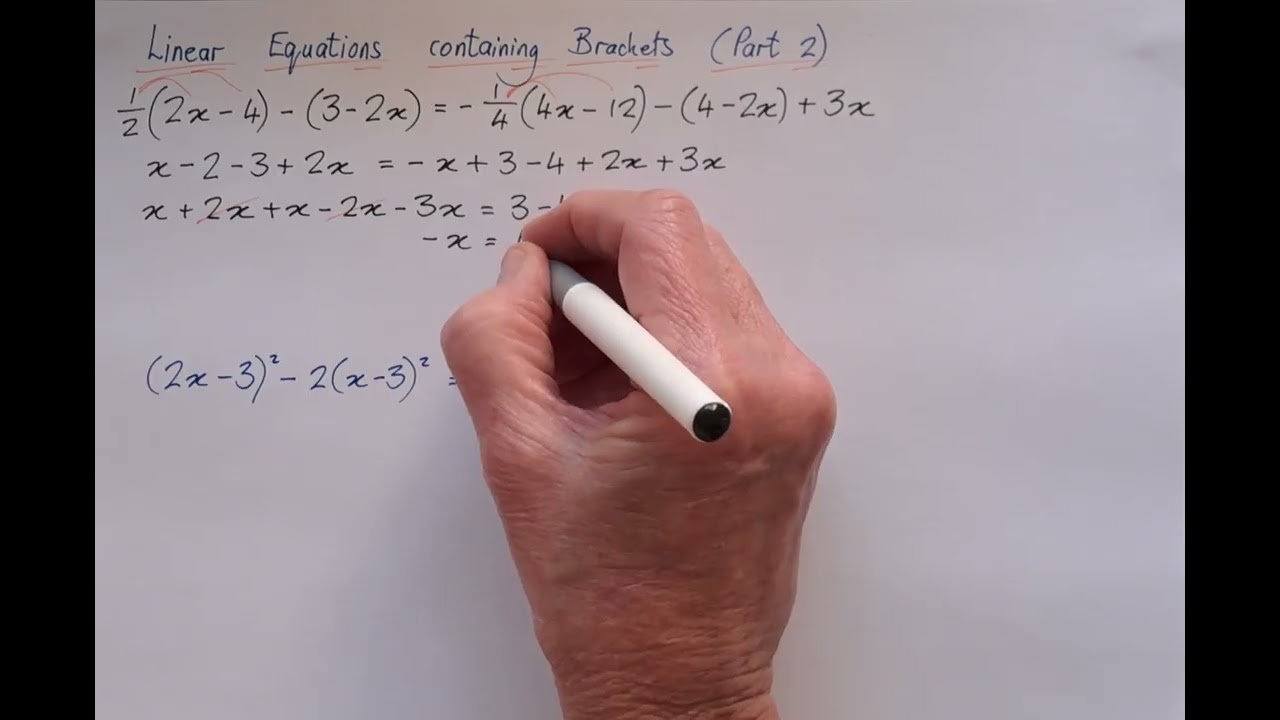 Linear Equations containing Brackets (Part 2)
1/2(2x - 4) - (3 - 2x) = - 1/4(4x - 12) - (4 - 2x) + 3x
x - 2 - 3 + 2x = - x + 3 - 4 + 2x + 3x
x + 2x + x - 2x - 3x = 3 -
- x =
(2x - 3)² - 2(x - 3)² =